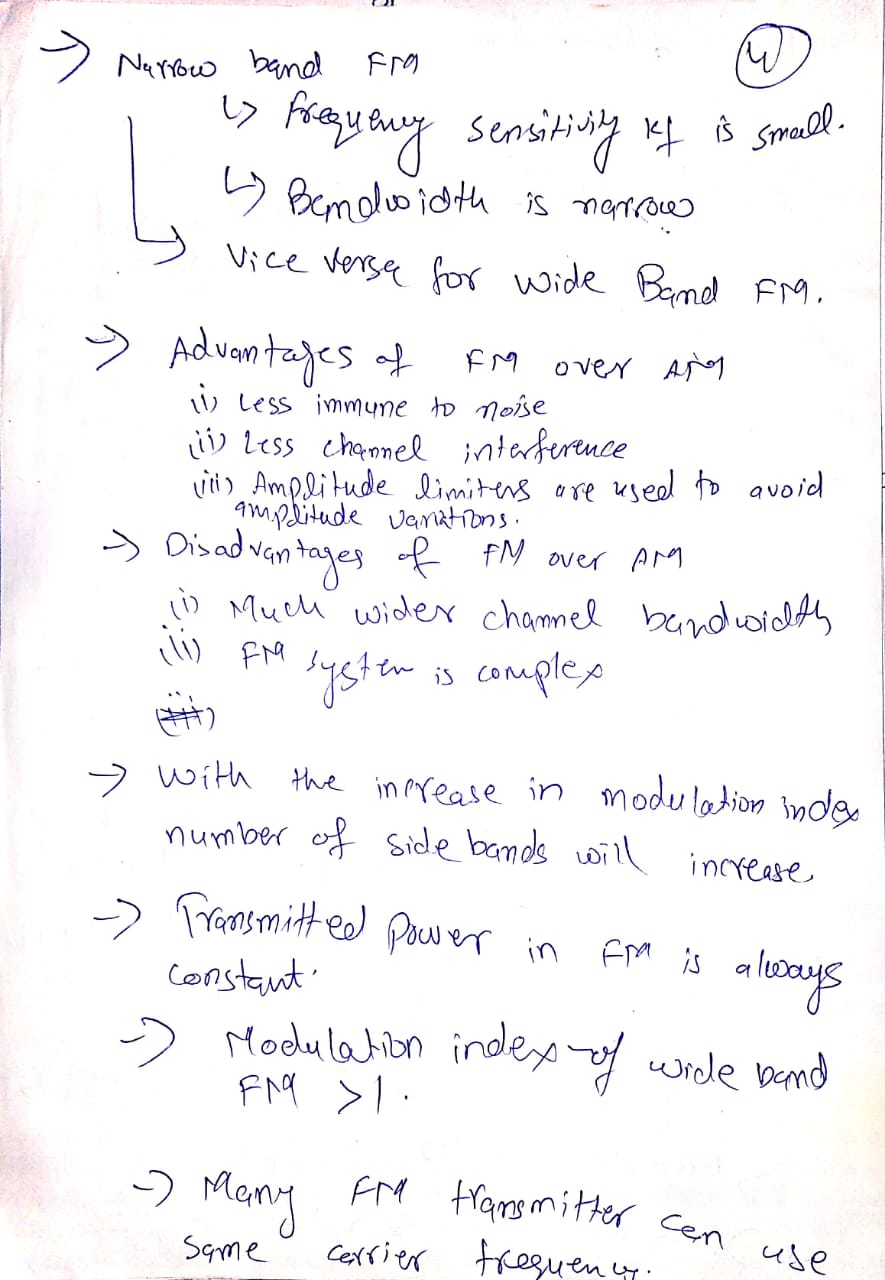 ④
→ Narrow band FM
↳ frequency sensitivity kf is small.
↳ Bandwidth is narrow
↳ Vice versa for wide Band FM.
→ Advantages of FM over AM
(i) Less immune to noise
(ii) Less channel interference
(iii) Amplitude limiters are used to avoid
amplitude variations.
→ Disadvantages of FM over AM
(i) Much wider channel bandwidth
(ii) FM system is complex
(iii)
→ With the increase in modulation index
number of side bands will increase
→ Transmitted Power in FM is always
constant.
→ Modulation index of wide band
FM >1.
→ Many FM transmitter can use
same carrier frequency.